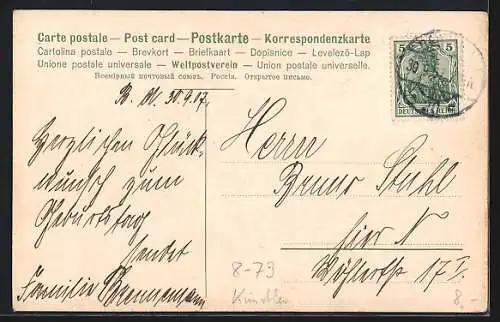 Carte postale – Post card – Postkarte – Korrespondenzkarte
Cartolina postale – Brevkort – Briefkaart – Dopisnice – Levelező-Lap
Unione postale universale – Weltpostverein – Union postale universelle.
Всемірный почтовый союзъ. Россія. Открытое письмо.
5 5
DEUTSCHES REICH
30
B. 30.9.07.
Herzlichen Glück-
wunsch zum
Geburtstag
sendet
Familie
Herrn
Bruno Stuhl
hier N
Wöhlertstr 17 I.
8-79
Künstler
8,-